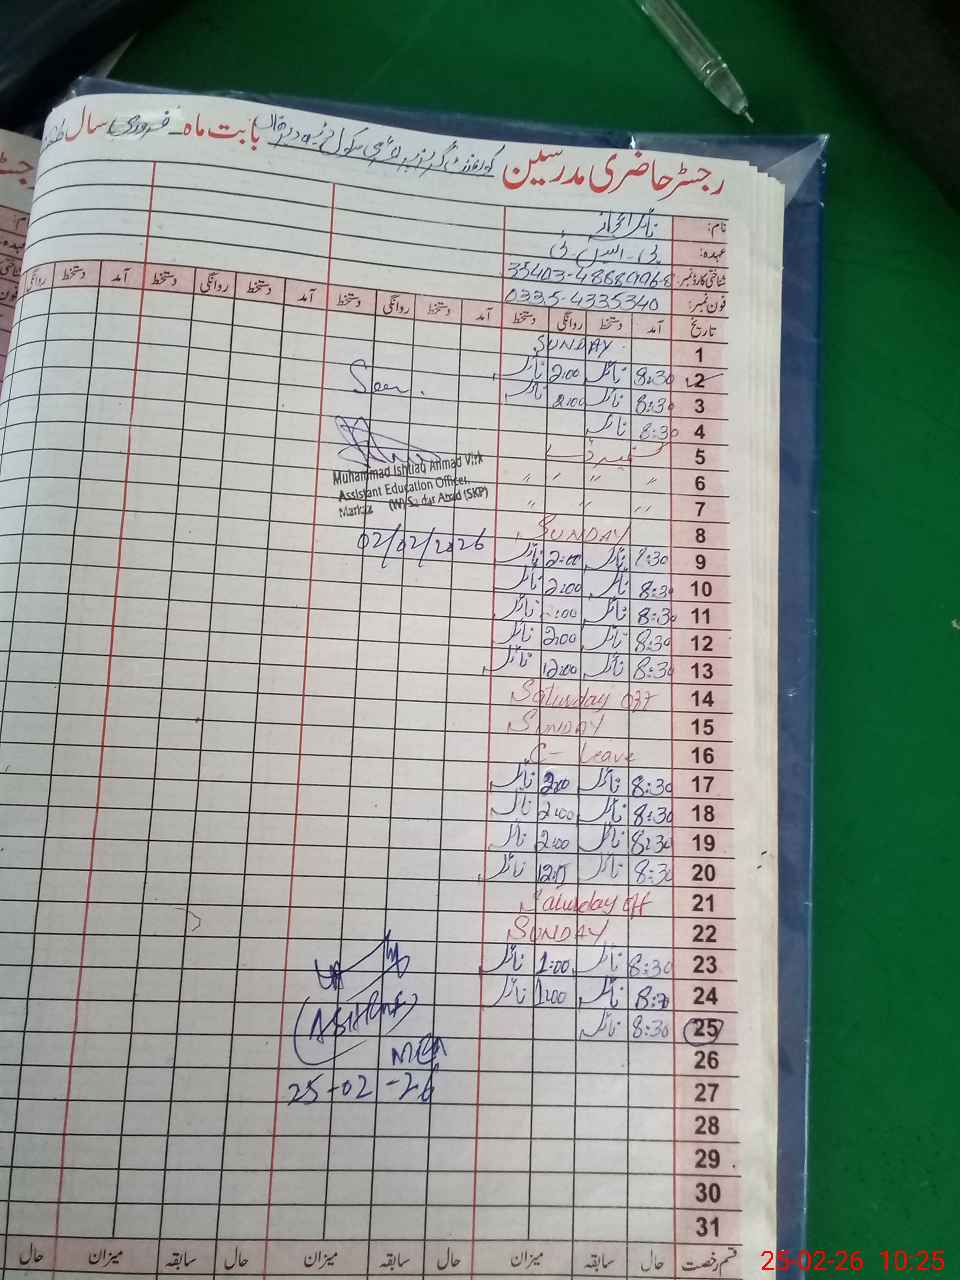 رجسٹر حاضری مدرسین گورنمنٹ گرلز پرائمری سکول بابت ماہ فروری سال
نام: نائلہ اعجاز
عہدہ: پی۔ایس۔ٹی
شناختی کارڈ نمبر:
فون نمبر: 0335-4335340
تاریخ آمد دستخط روانگی دستخط آمد دستخط روانگی دستخط آمد دستخط روانگی دستخط آمد دستخط روانگی
1 SUNDAY
2 8:30 نائلہ 2:00 نائلہ
3 8:30 نائلہ 2:00 نائلہ
Seen.
4 8:30 نائلہ
5
6 " " " "
7 " " "
Muhammad Ishtiaq Ahmad Virk
Assistant Education Officer,
Markaz (W) Safdar Abad (SKP)
02/02/2026
8 SUNDAY
9 نائلہ 2:00 نائلہ
10 8:30 نائلہ 2:00 نائلہ
11 8:30 نائلہ 2:00 نائلہ
12 8:30 نائلہ 2:00 نائلہ
13 8:30 نائلہ 12:00 نائلہ
14 Saturday Off
15 SUNDAY
16 C- Leave
17 8:30 نائلہ 2:00 نائلہ
18 8:30 نائلہ 2:00 نائلہ
19 8:30 نائلہ 2:00 نائلہ
20 8:30 نائلہ نائلہ
21 Saturday Off
22 SUNDAY
23 8:30 نائلہ 1:00 نائلہ
24 8:30 نائلہ 1:00 نائلہ
25 8:30 نائلہ
MEA
25-02-26
26
27
28
29
30
31
قسم رخصت حال سابقہ میزان حال سابقہ میزان حال سابقہ میزان حال
25-02-26 10:25